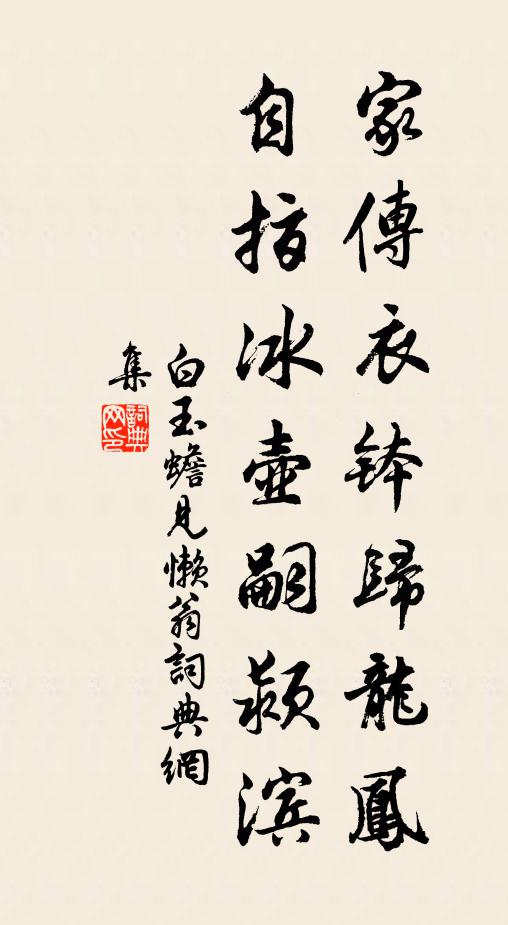 家傳衣鉢歸龍鳳
自指冰壺嗣潁滨
白玉蟾見懶翁詞典網
集
詞典
网印